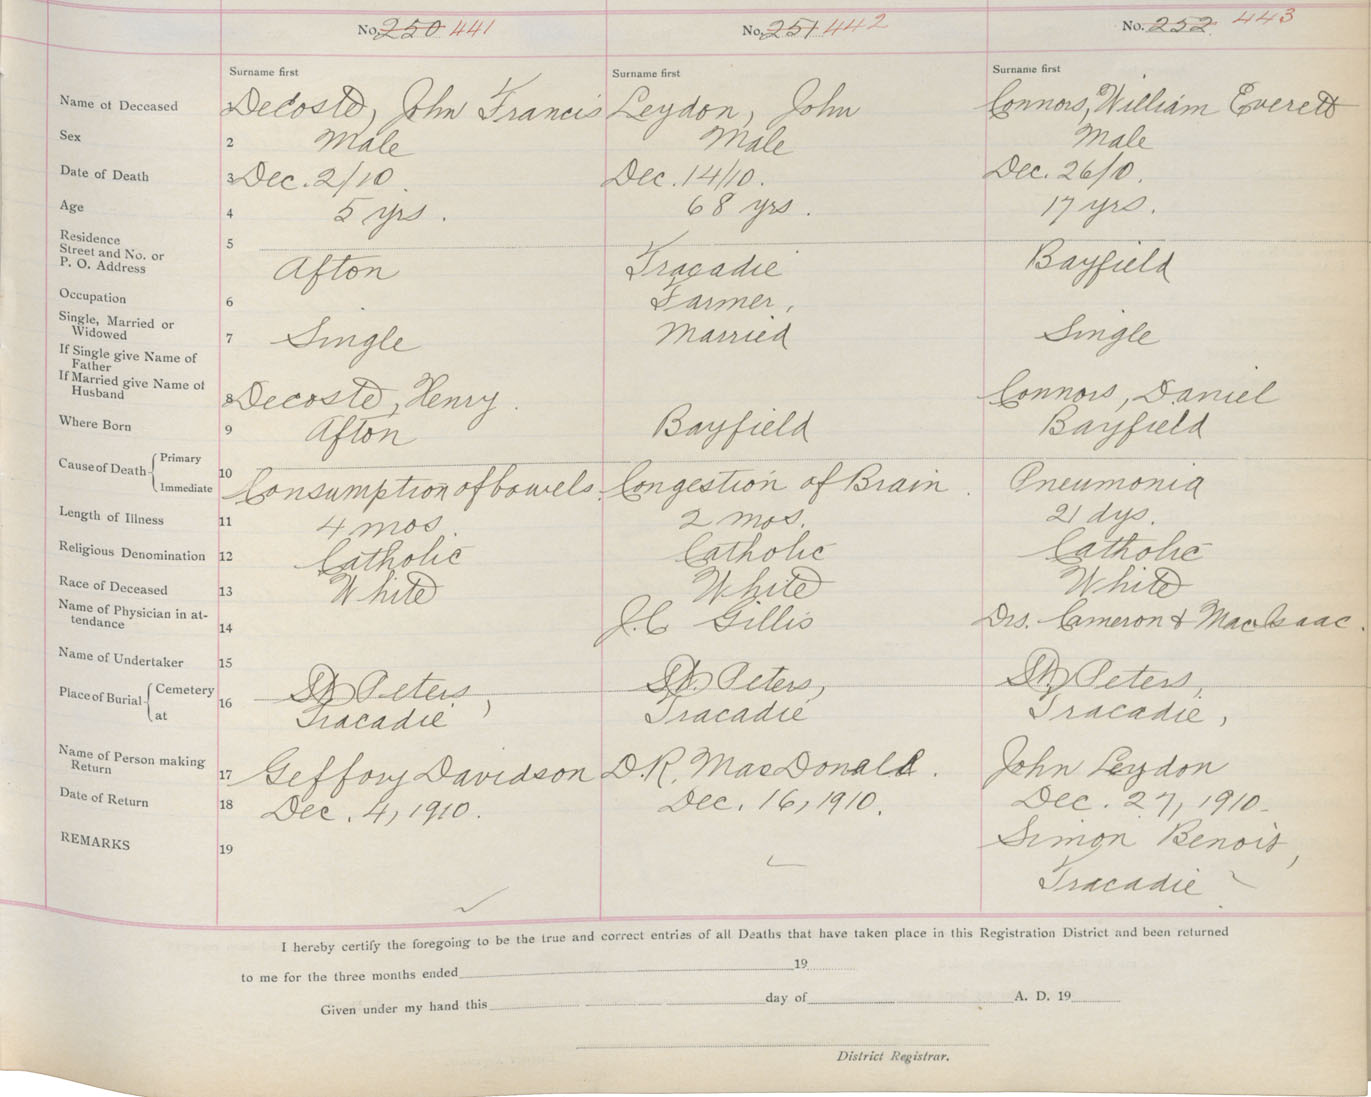 No. 250 441 No. 251 442 No. 252 443
Surname first Surname first Surname first
Name of Deceased 1 Decoste, John Francis Leydon, John Connors, William Everett
Sex 2 Male Male Male
Date of Death 3 Dec. 2/10. Dec. 14/10. Dec. 26/10.
Age 4 5 yrs. 68 yrs. 17 yrs.
Residence 5
Street and No. or
P. O. Address Afton Tracadie Bayfield
Occupation 6 Farmer,
Single, Married or
Widowed 7 Single Married Single
If Single give Name of
Father
If Married give Name of
Husband 8 Decoste, Henry. Connors, Daniel
Where Born 9 Afton Bayfield Bayfield
Cause of Death Primary
Immediate 10 Consumption of bowels. Congestion of Brain. Pneumonia
Length of Illness 11 4 mos. 2 mos. 21 dys.
Religious Denomination 12 Catholic Catholic Catholic
Race of Deceased 13 White White White
Name of Physician in at-
tendance 14 J.C Gillis Drs. Cameron & MacIsaac.
Name of Undertaker 15
Place of Burial Cemetery 16 St. Peters, St. Peters, St. Peters,
at Tracadie Tracadie Tracadie,
Name of Person making
Return 17 Geffory Davidson D.R. MacDonald. John Leydon
Date of Return 18 Dec. 4, 1910. Dec. 16, 1910. Dec. 27, 1910.
REMARKS 19 Simon Benoit,
Tracadie
I hereby certify the foregoing to be the true and correct entries of all Deaths that have taken place in this Registration District and been returned
to me for the three months ended 19
Given under my hand this day of A. D. 19
District Registrar.